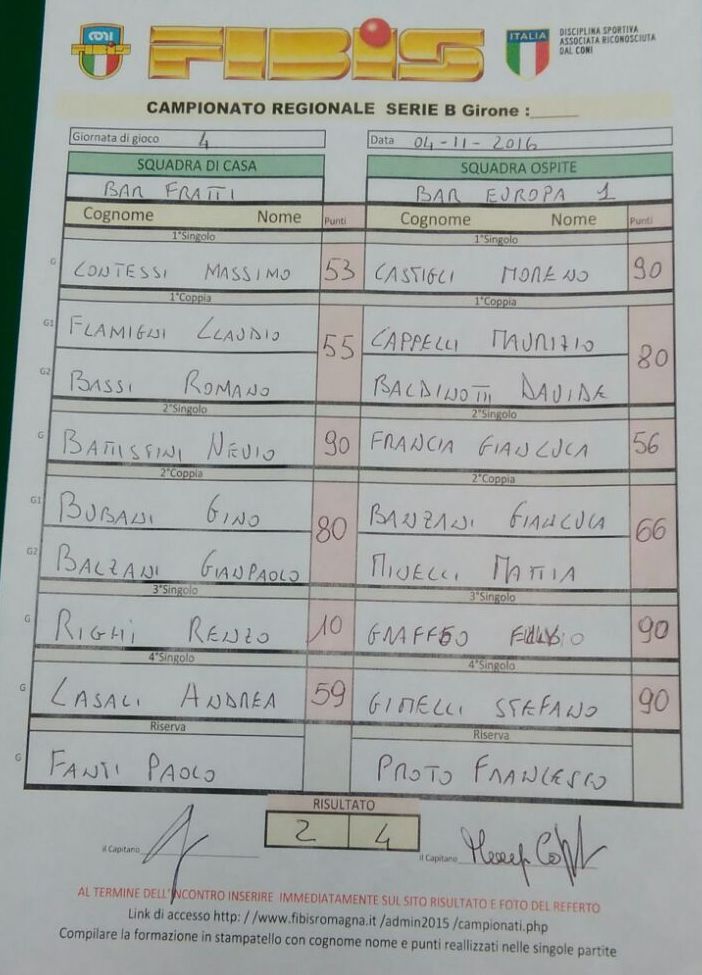 CONI
FIBIS
ITALIA
DISCIPLINA SPORTIVA
ASSOCIATA RICONOSCIUTA
DAL CONI
CAMPIONATO REGIONALE SERIE B Girone :_____
Giornata di gioco 4 Data 04-11-2016
SQUADRA DI CASA SQUADRA OSPITE
BAR FRATTI BAR EUROPA 1
Cognome Nome Punti Cognome Nome Punti
1°Singolo 1°Singolo
G CONTESSI MASSIMO 53 CASTIGLI MORENO 90
1°Coppia 1°Coppia
G1 FLAMIGNI CLAUDIO 55 CAPPELLI MAURIZIO 80
G2 BASSI ROMANO BALDINOTTI DAVIDE
2°Singolo 2°Singolo
G BATTISTINI NEVIO 90 FRANCIA GIANLUCA 56
2°Coppia 2°Coppia
G1 BUBANI GINO 80 BANZANI GIANLUCA 66
G2 BALZANI GIANPAOLO MINELLI MATTIA
3°Singolo 3°Singolo
G RIGHI RENZO 10 GRAFFEO 90
4°Singolo 4°Singolo
G CASALI ANDREA 59 GIMELLI STEFANO 90
Riserva Riserva
G FANTI PAOLO PROTO FRANCESCO
RISULTATO
2 4
il Capitano il Capitano
AL TERMINE DELL'INCONTRO INSERIRE IMMEDIATAMENTE SUL SITO RISULTATO E FOTO DEL REFERTO
Link di accesso http: / /www.fibisromagna.it /admin2015 /campionati.php
Compilare la formazione in stampatello con cognome nome e punti reallizzati nelle singole partite